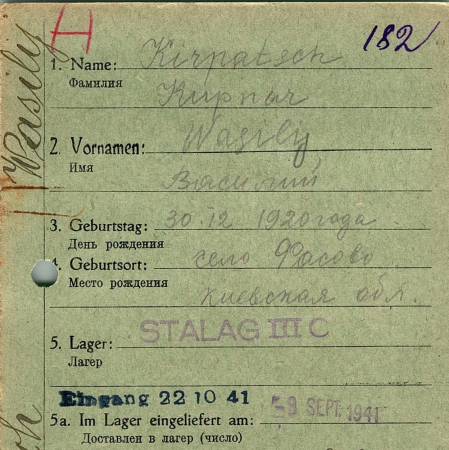 H
182
Wasilij
1. Name: Kirpatsch
Фамилия
Кирпач
2. Vornamen: Wasilij
Имя
Василий
3. Geburtstag: 30.12 1920 года
День рождения
4. Geburtsort: село Фасово
Место рождения
Киевская обл.
STALAG III C
5. Lager:
Лагер
Eingang 22 10 41
5a. Im Lager eingeliefert am: 9 SEPT. 1941
Доставлен в лагер (число)